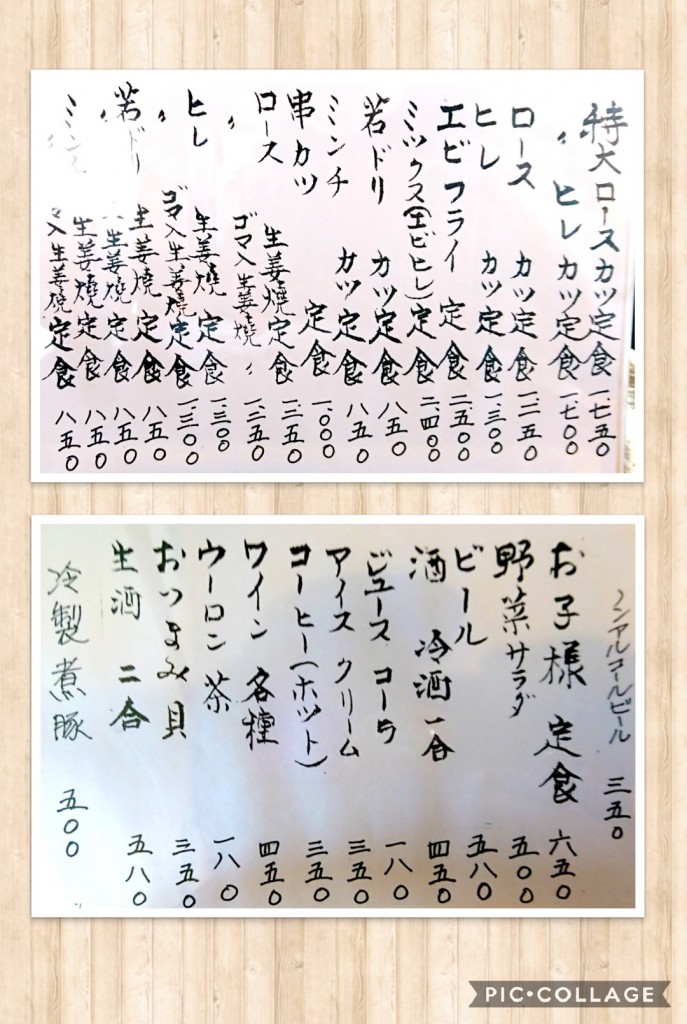 特大ロースカツ定食 一、七五〇
〃 ヒレカツ定食 一、七〇〇
ロース カツ定食 一、二五〇
ヒレ カツ定食 一、三〇〇
エビフライ 定食 二、五〇〇
ミックス(エビヒレ)定食 二、四〇〇
若ドリ カツ定食 八五〇
ミンチ カツ定食 八五〇
串カツ 定食 一、〇〇〇
ロース 生姜燒定食 一、二五〇
〃 ゴマ入生姜燒 〃 一、二五〇
ヒレ 生姜燒定食 一、三〇〇
〃 ゴマ入生姜燒定食 一、三〇〇
若ドリ 生姜燒定食 八五〇
〃 生姜燒定食 八五〇
ミンチ 生姜燒定食 八五〇
マ入生姜燒定食 八五〇
ノンアルコールビール 三五〇
お子様 定食 六五〇
野菜サラダ 五〇〇
ビール 五八〇
酒 冷酒一合 四五〇
ジュース コーラ 一八〇
アイスクリーム 三五〇
コーヒー(ホット) 三五〇
ワイン 各種 四五〇
ウーロン茶 一八〇
おつまみ貝 三五〇
生酒 二合 五八〇
冷製煮豚 五〇〇
PIC•COLLAGE